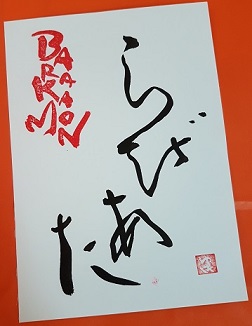 BARAKAMON
らびあた